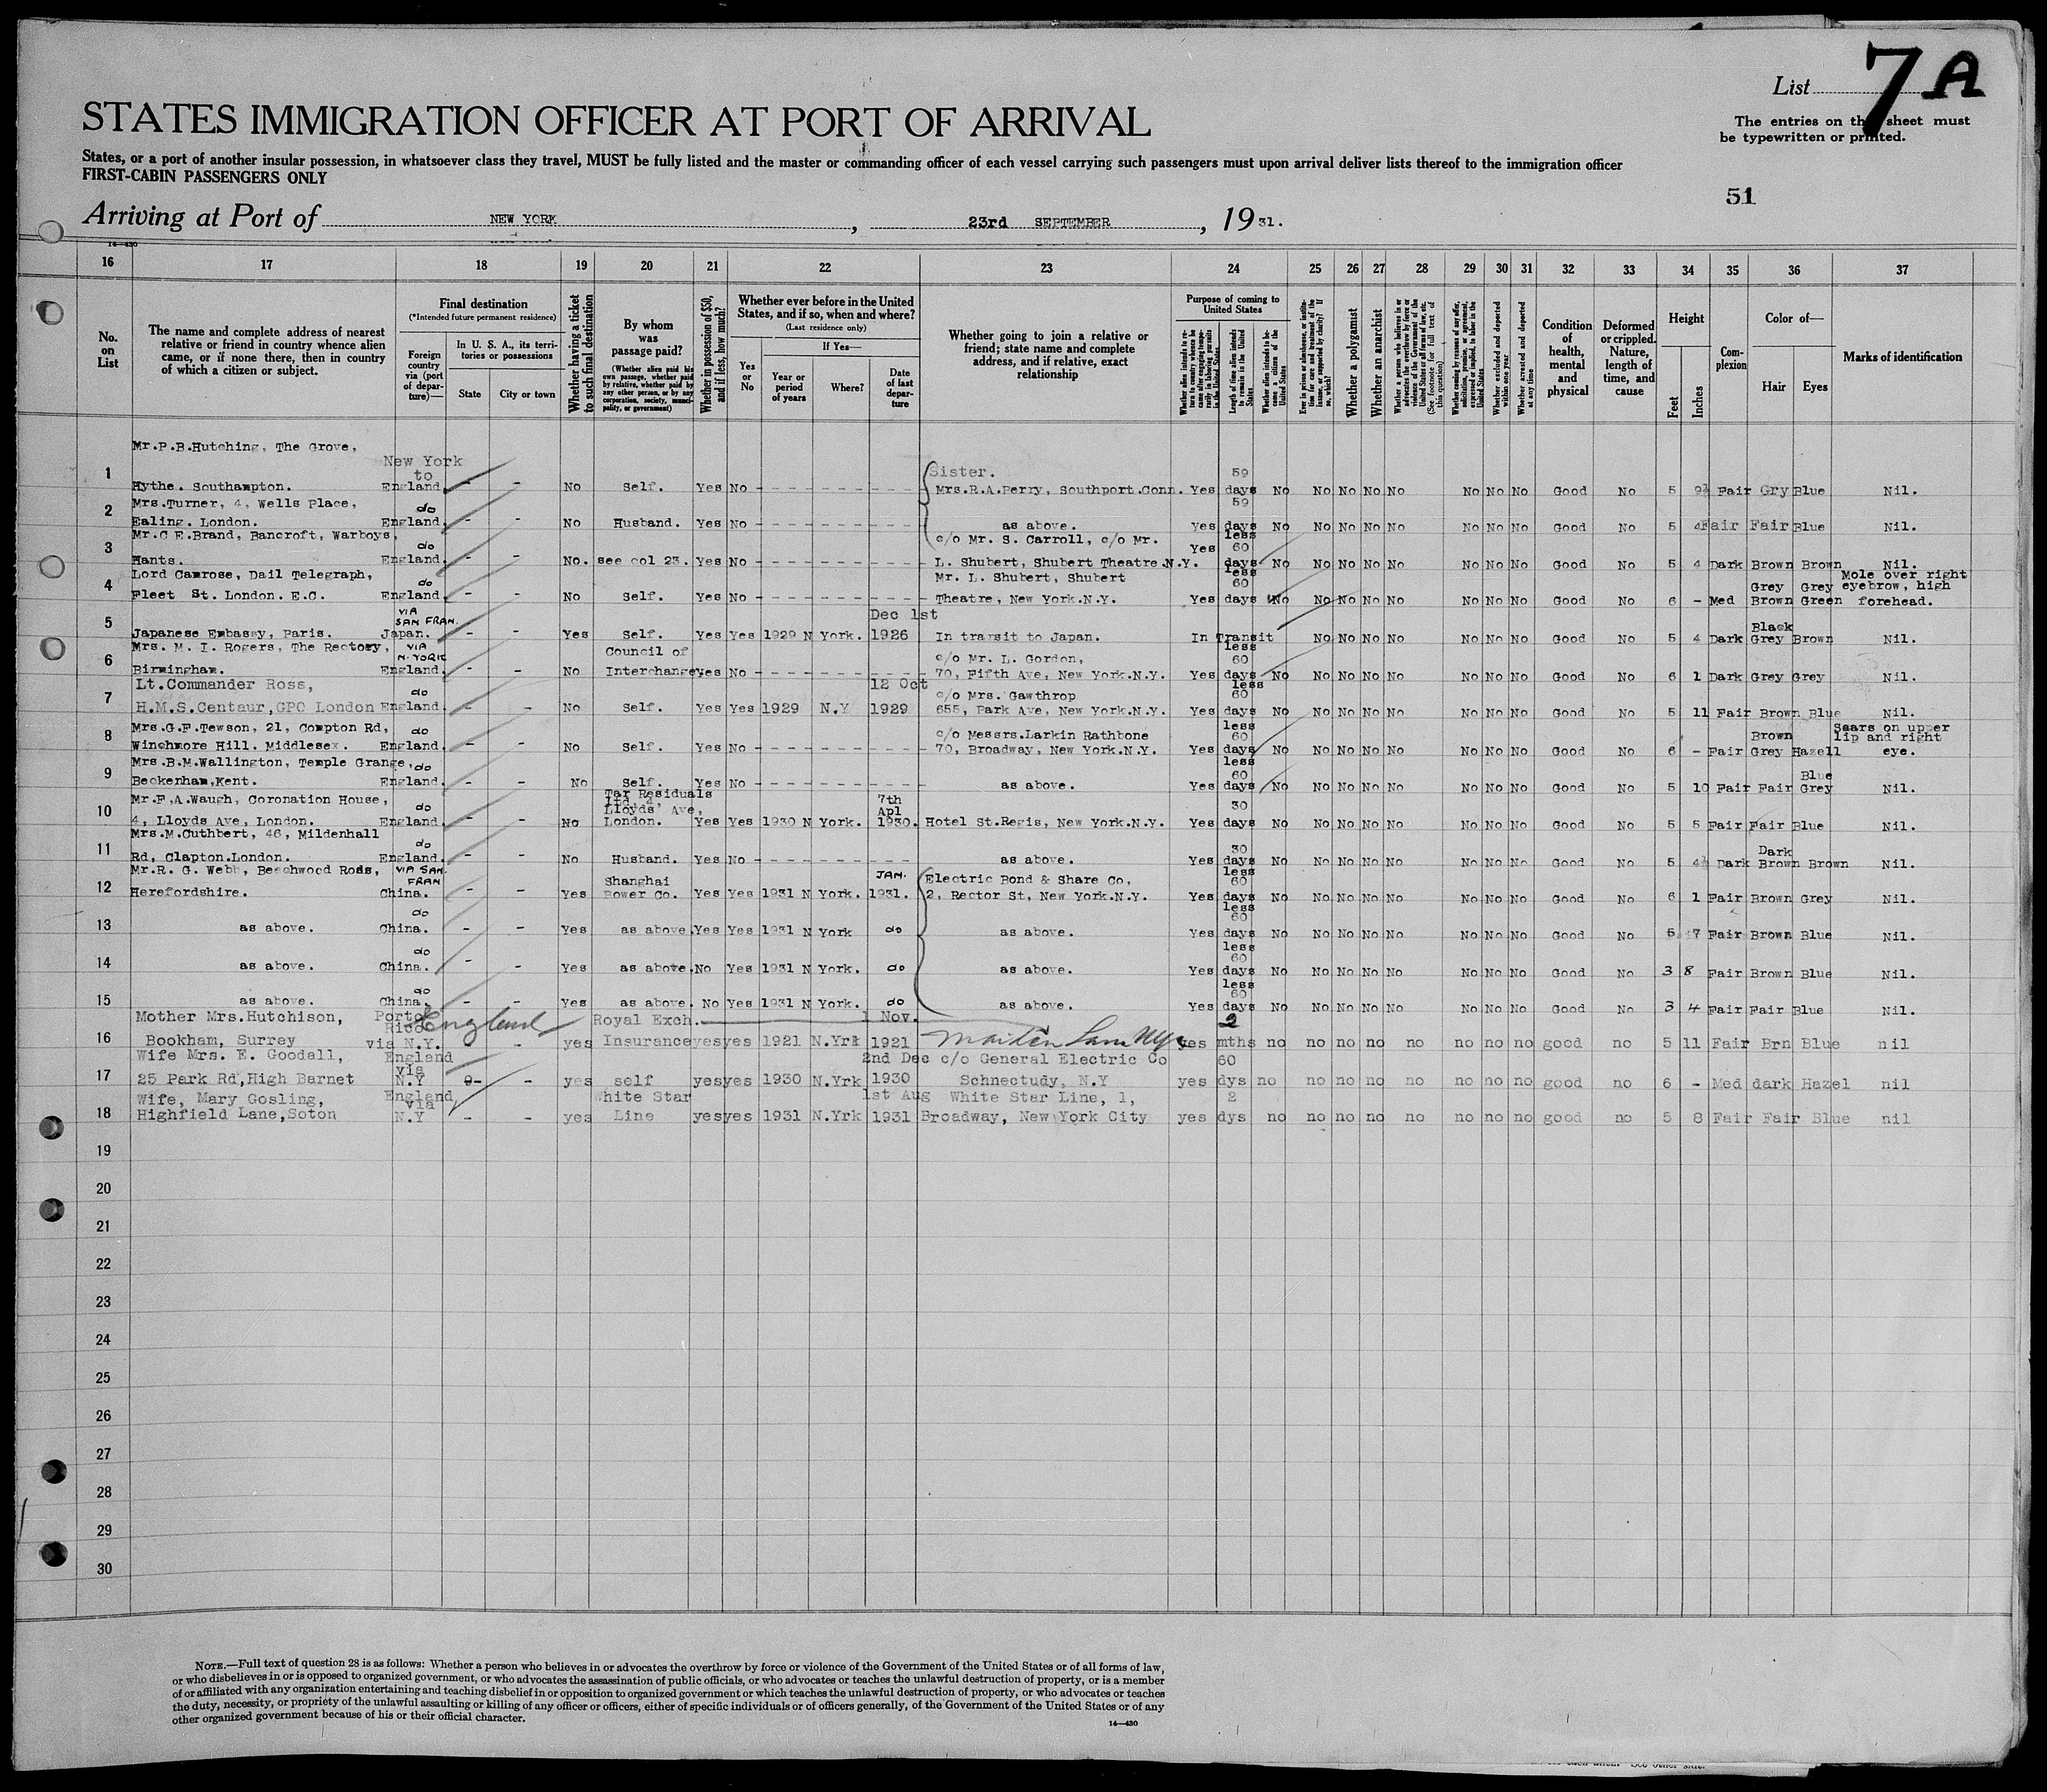 List 7 A
STATES IMMIGRATION OFFICER AT PORT OF ARRIVAL
The entries on this sheet must
be typewritten or printed.
States, or a port of another insular possession, in whatsoever class they travel, MUST be fully listed and the master or commanding officer of each vessel carrying such passengers must upon arrival deliver lists thereof to the immigration officer
FIRST-CABIN PASSENGERS ONLY
51
Arriving at Port of NEW YORK, 23rd SEPTEMBER, 1931.
14—430
16 17 18 19 20 21 22 23 24 25 26 27 28 29 30 31 32 33 34 35 36 37
No. on List
The name and complete address of nearest relative or friend in country whence alien came, or if none there, then in country of which a citizen or subject.
Final destination
(*Intended future permanent residence)
Foreign country via (port of departure)—
In U. S. A., its territories or possessions
State
City or town
Whether having a ticket to such final destination
By whom was passage paid?
(Whether alien paid his own passage, whether paid by relative, whether paid by any other person, or by any corporation, society, municipality, or government)
Whether in possession of $50, and if less, how much?
Whether ever before in the United States, and if so, when and where?
(Last residence only)
Yes or No
If Yes—
Year or period of years
Where?
Date of last departure
Whether going to join a relative or friend; state name and complete address, and if relative, exact relationship
Purpose of coming to United States
Whether alien intends to return to country whence he came after engaging temporarily in laboring pursuits in the United States
Length of time alien intends to remain in the United States
Whether alien intends to become a citizen of the United States
Ever in prison or almshouse, or institution for care and treatment of the insane, or supported by charity? If so, which?
Whether a polygamist
Whether an anarchist
Whether a person who believes in or advocates the overthrow by force or violence of the Government of the United States or all forms of law, etc. (See footnote for full text of this question)
Whether coming by reason of any offer, solicitation, promise, or agreement, expressed or implied, to labor in the United States
Whether excluded and deported within one year
Whether arrested and deported at any time
Condition of health, mental and physical
Deformed or crippled. Nature, length of time, and cause
Height
Feet
Inches
Complexion
Color of—
Hair
Eyes
Marks of identification
Mr.P.B.Hutching, The Grove,
New York to
1 Hythe. Southampton. England. - - No Self. Yes No Sister. Mrs.R.A.Perry, Southport.Conn. Yes 59 days No No No No No No No No Good No 5 9½ Fair Gry Blue Nil.
Mrs.Turner, 4, Wells Place,
2 Ealing. London. do England. - - No Husband. Yes No as above. Yes 59 days No No No No No No No No Good No 5 4 Fair Fair Blue Nil.
Mr.C E.Brand, Bancroft, Warboys,
c/o Mr. S. Carroll, c/o Mr.
3 Hants. do England. - - No. see col 23. Yes No L. Shubert, Shubert Theatre.N.Y. Yes less 60 days No No No No No No No No Good No 5 4 Dark Brown Brown Nil.
Lord Camrose, Dail Telegraph,
Mr. L. Shubert, Shubert
4 Fleet St. London. E.C. do England. - - No Self. Yes No Theatre, New York.N.Y. Yes less 60 days No No No No No No No No Good No 6 - Med Grey Brown Grey Green Mole over right eyebrow, high forehead.
5 Japanese Embassy, Paris. VIA SAN FRAN. Japan. - - Yes Self. Yes Yes 1929 N York. Dec 1st 1926 In transit to Japan. In Transit No No No No No No No Good No 5 4 Dark Black Grey Brown Nil.
Mrs. M. I. Rogers, The Rectory,
6 Birmingham. VIA N.YORK England. - - No Council of Interchange. Yes No c/o Mr. L. Gordon, 70, Fifth Ave, New York.N.Y. Yes less 60 days No No No No No No No No Good No 6 1 Dark Grey Grey Nil.
Lt.Commander Ross,
7 H.M.S.Centaur,GPO London do England. - - No Self. Yes Yes 1929 N.Y 12 Oct 1929 c/o Mrs. Gawthrop 655, Park Ave, New York.N.Y. Yes less 60 days No No No No No No No No Good No 5 11 Fair Brown Blue Nil.
Mrs.G.F.Tewson, 21, Compton Rd,
8 Winchmore Hill. Middlesex. do England. - - No Self. Yes No c/o Messrs.Larkin Rathbone 70, Broadway, New York.N.Y. Yes less 60 days No No No No No No No No Good No 6 - Fair Brown Grey Hazell Saars on upper lip and right eye.
Mrs.B.M.Wallington, Temple Grange,
9 Beckenham,Kent. do England. - - No Self. Yes No as above. Yes less 60 days No No No No No No No No Good No 5 10 Fair Fair Blue Grey Nil.
Mr.F.A.Waugh, Coronation House,
10 4, Lloyds Ave, London. do England. - - No Tar Residuals ltd, 4, Lloyds Ave, London. Yes Yes 1930 N York. 7th Apl 1930. Hotel St.Regis, New York.N.Y. Yes 30 days No No No No No No No No Good No 5 5 Fair Fair Blue Nil.
Mrs.M.Cuthbert, 46, Mildenhall
11 Rd, Clapton.London. do England. - - No Husband. Yes No as above. Yes 30 days No No No No No No No No Good No 5 4½ Dark Dark Brown Brown Nil.
Mr.R. G. Webb, Beechwood Rods,
12 Herefordshire. VIA SAN FRAN China. - - Yes Shanghai Power Co. Yes Yes 1931 N York. JAN. 1931. Electric Bond & Share Co, 2, Rector St, New York.N.Y. Yes less 60 days No No No No No No No No Good No 6 1 Fair Brown Grey Nil.
13 as above. do China. - - Yes as above. Yes Yes 1931 N York do as above. Yes less 60 days No No No No No No No No Good No 5 7 Fair Brown Blue Nil.
14 as above. do China. - - Yes as above. No Yes 1931 N York. do as above. Yes less 60 days No No No No No No No No Good No 3 8 Fair Brown Blue Nil.
15 as above. do China. - - Yes as above. No Yes 1931 N York. do as above. Yes less 60 days No No No No No No No No Good No 3 4 Fair Fair Blue Nil.
Mother Mrs.Hutchison, Porto Rico England
16 Bookham, Surrey via N.Y. - - yes Royal Exch. Insurance yes yes 1921 N.Yrk 1 Nov. 1921 Maiden Lane NYC yes 2 mths no no no no no no no no good no 5 11 Fair Brn Blue nil
Wife Mrs. E. Goodall,
17 25 Park Rd,High Barnet England via N.Y - - yes self yes yes 1930 N.Yrk 2nd Dec 1930 c/o General Electric Co Schnectudy, N.Y yes 60 dys no no no no no no no no good no 6 - Med dark Hazel nil
Wife, Mary Gosling,
18 Highfield Lane,Soton England, via N.Y - - yes White Star Line yes yes 1931 N.Yrk 1st Aug 1931 White Star Line, 1, Broadway, New York City yes 2 dys no no no no no no no no good no 5 8 Fair Fair Blue nil
19
20
21
22
23
24
25
26
27
28
29
30
NOTE.—Full text of question 28 is as follows: Whether a person who believes in or advocates the overthrow by force or violence of the Government of the United States or of all forms of law,
or who disbelieves in or is opposed to organized government, or who advocates the assassination of public officials, or who advocates or teaches the unlawful destruction of property, or is a member
of or affiliated with any organization entertaining and teaching disbelief in or opposition to organized government or which teaches the unlawful destruction of property, or who advocates or teaches
the duty, necessity, or propriety of the unlawful assaulting or killing of any officer or officers, either of specific individuals or of officers generally, of the Government of the United States or of any
other organized government because of his or their official character.
14—430